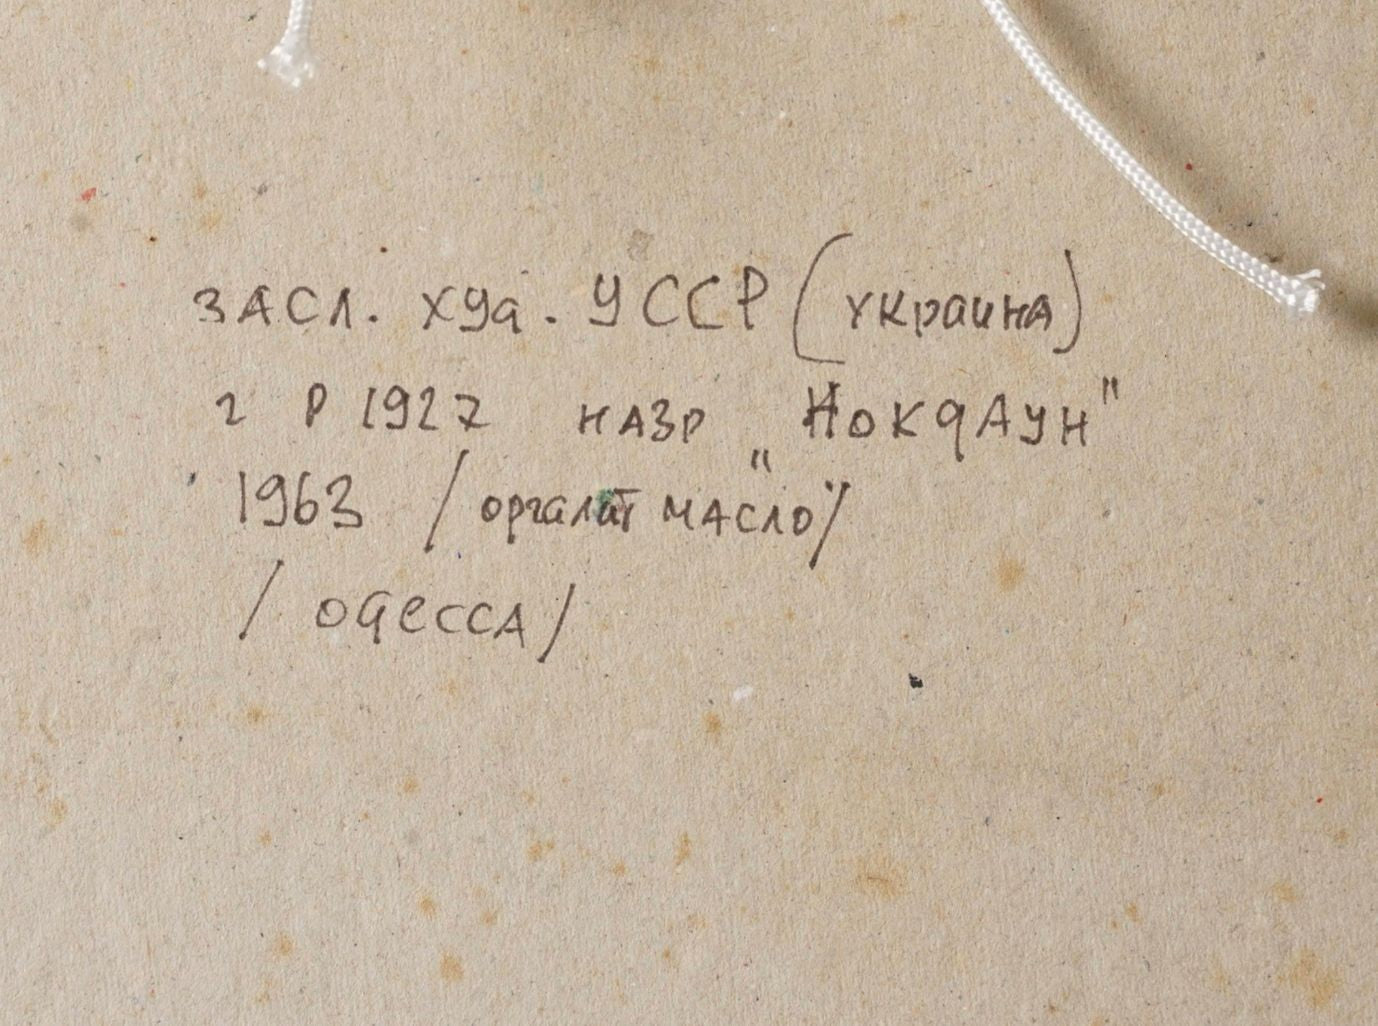 ЗАСЛ. ХУД. УССР (Украина)
г Р 1927 НАЗР "Нокдаун"
1963 /оргалит "МАСЛО"/
/ОДЕССА/